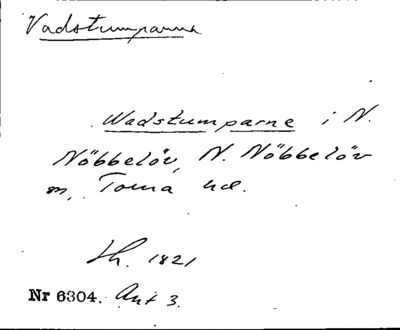 Vadstumparna
Wadstumparne i N.
Nöbbelöv, N. Nöbbelöv
sn, Torna hd.
Lh. 1821
Nr 6304. Ant 3.